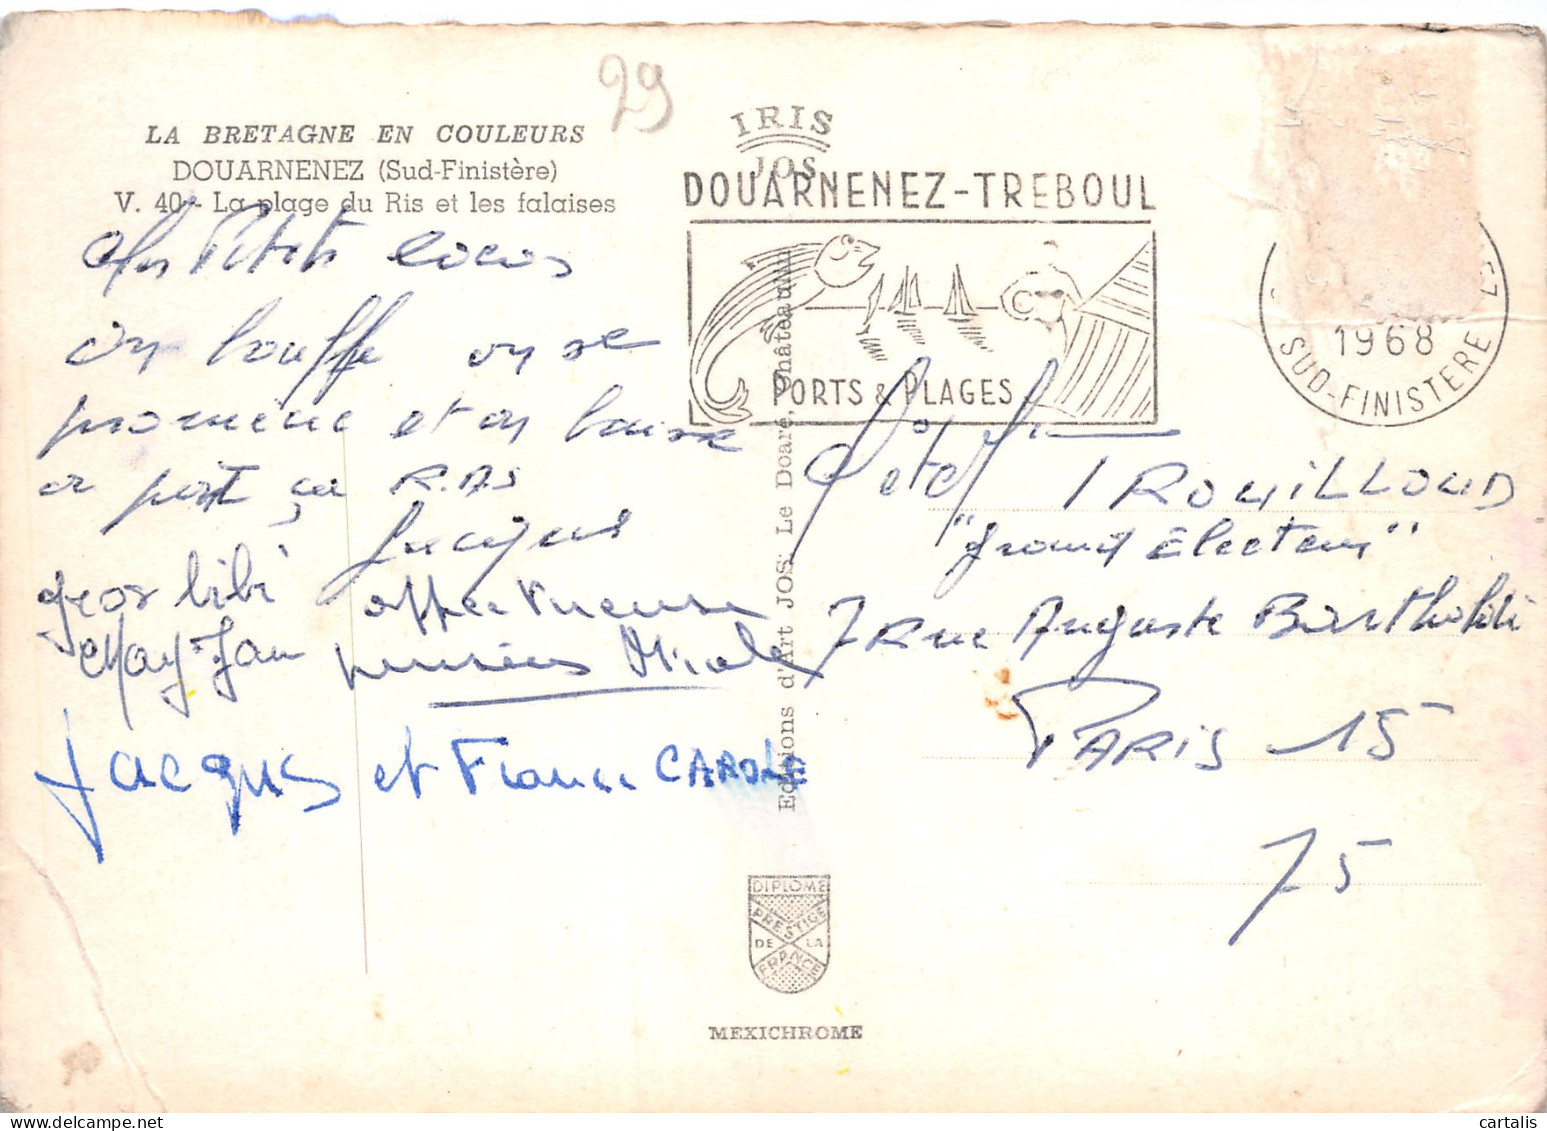 29
LA BRETAGNE EN COULEURS
DOUARNENEZ (Sud-Finistère)
V. 40 - La plage du Ris et les falaises
IRIS
JOS
DOUARNENEZ-TREBOUL
PORTS & PLAGES
1968
SUD-FINISTERE
Petits cocos
on bouffe on se
promène et on baise
a part ça R.A.S
Jacques
gros bibi affectueuses
pensées Nicole
Jacques et France CAROLE
Editions d'Art JOS Le Doaré, Châteaulin
ROUILLOUD
"Grand Electeur"
7 Rue Auguste Bartholdi
PARIS 15
75
DIPLOME
PRESTIGE
DE LA
FRANCE
MEXICHROME
cartalis